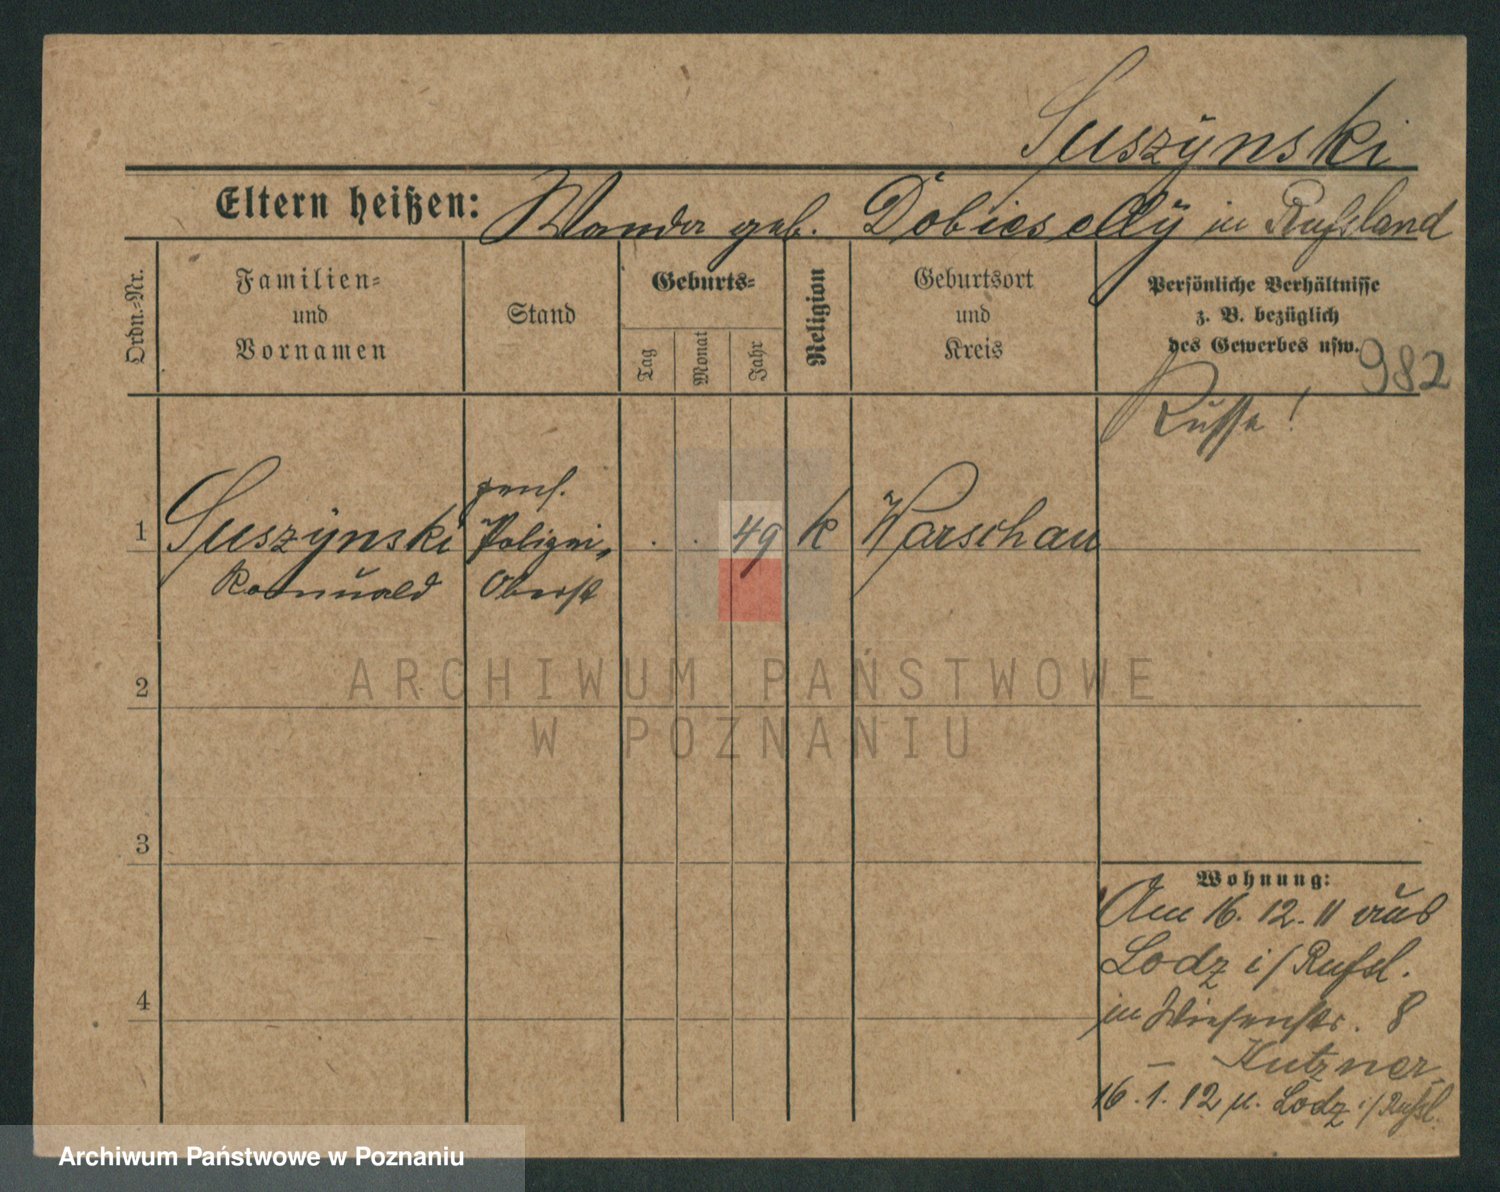 Suszÿnski
Eltern heißen: Wanda geb. in Russland
Ordn.=Nr.
Familien=
und
Vornamen
Stand
Geburts=
Tag
Monat
Jahr
Religion
Geburtsort
und
Kreis
Persönliche Verhältnisse
z. B. bezüglich
des Gewerbes usw.
982
Russe!
1 Suszÿnski
Romuald
pens.
Polizei-
Oberst
. . 49 k Warschau
2
3
4
ARCHIWUM PAŃSTWOWE
W POZNANIU
Wohnung:
Am 16. 12. 11 aus
Lodz i/Russl.
in Wiesenstr. 8
- Kutzner
16. 1. 12 n. Lodz i/Russl.
Archiwum Państwowe w Poznaniu